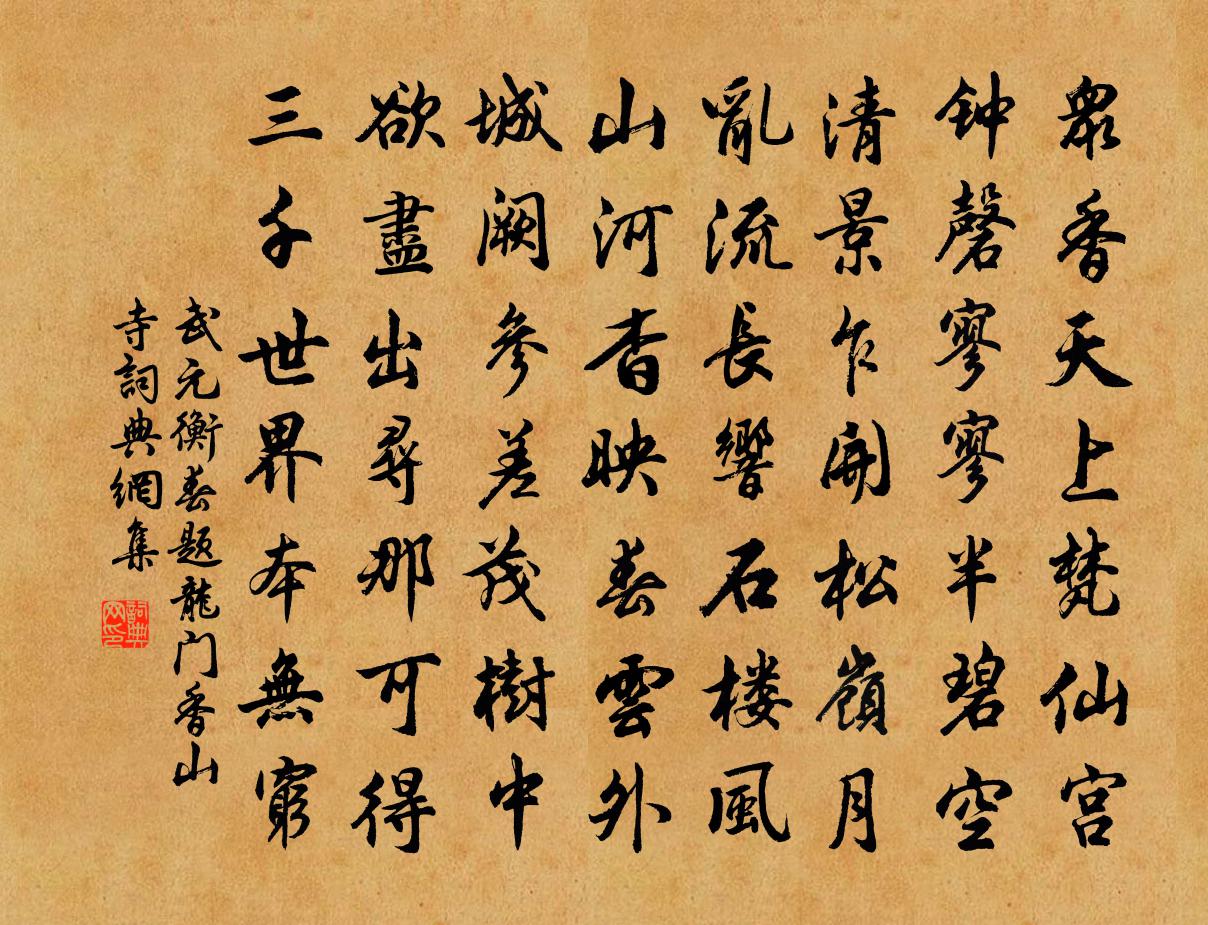 眾香天上梵仙宮
钟磬寥寥半碧空
清景乍開松嶺月
亂流長響石楼風
山河杳映春雲外
城阙參差茂樹中
欲盡出尋那可得
三千世界本無窮
武元衡春題龍门香山
寺詞典網集
詞典网印